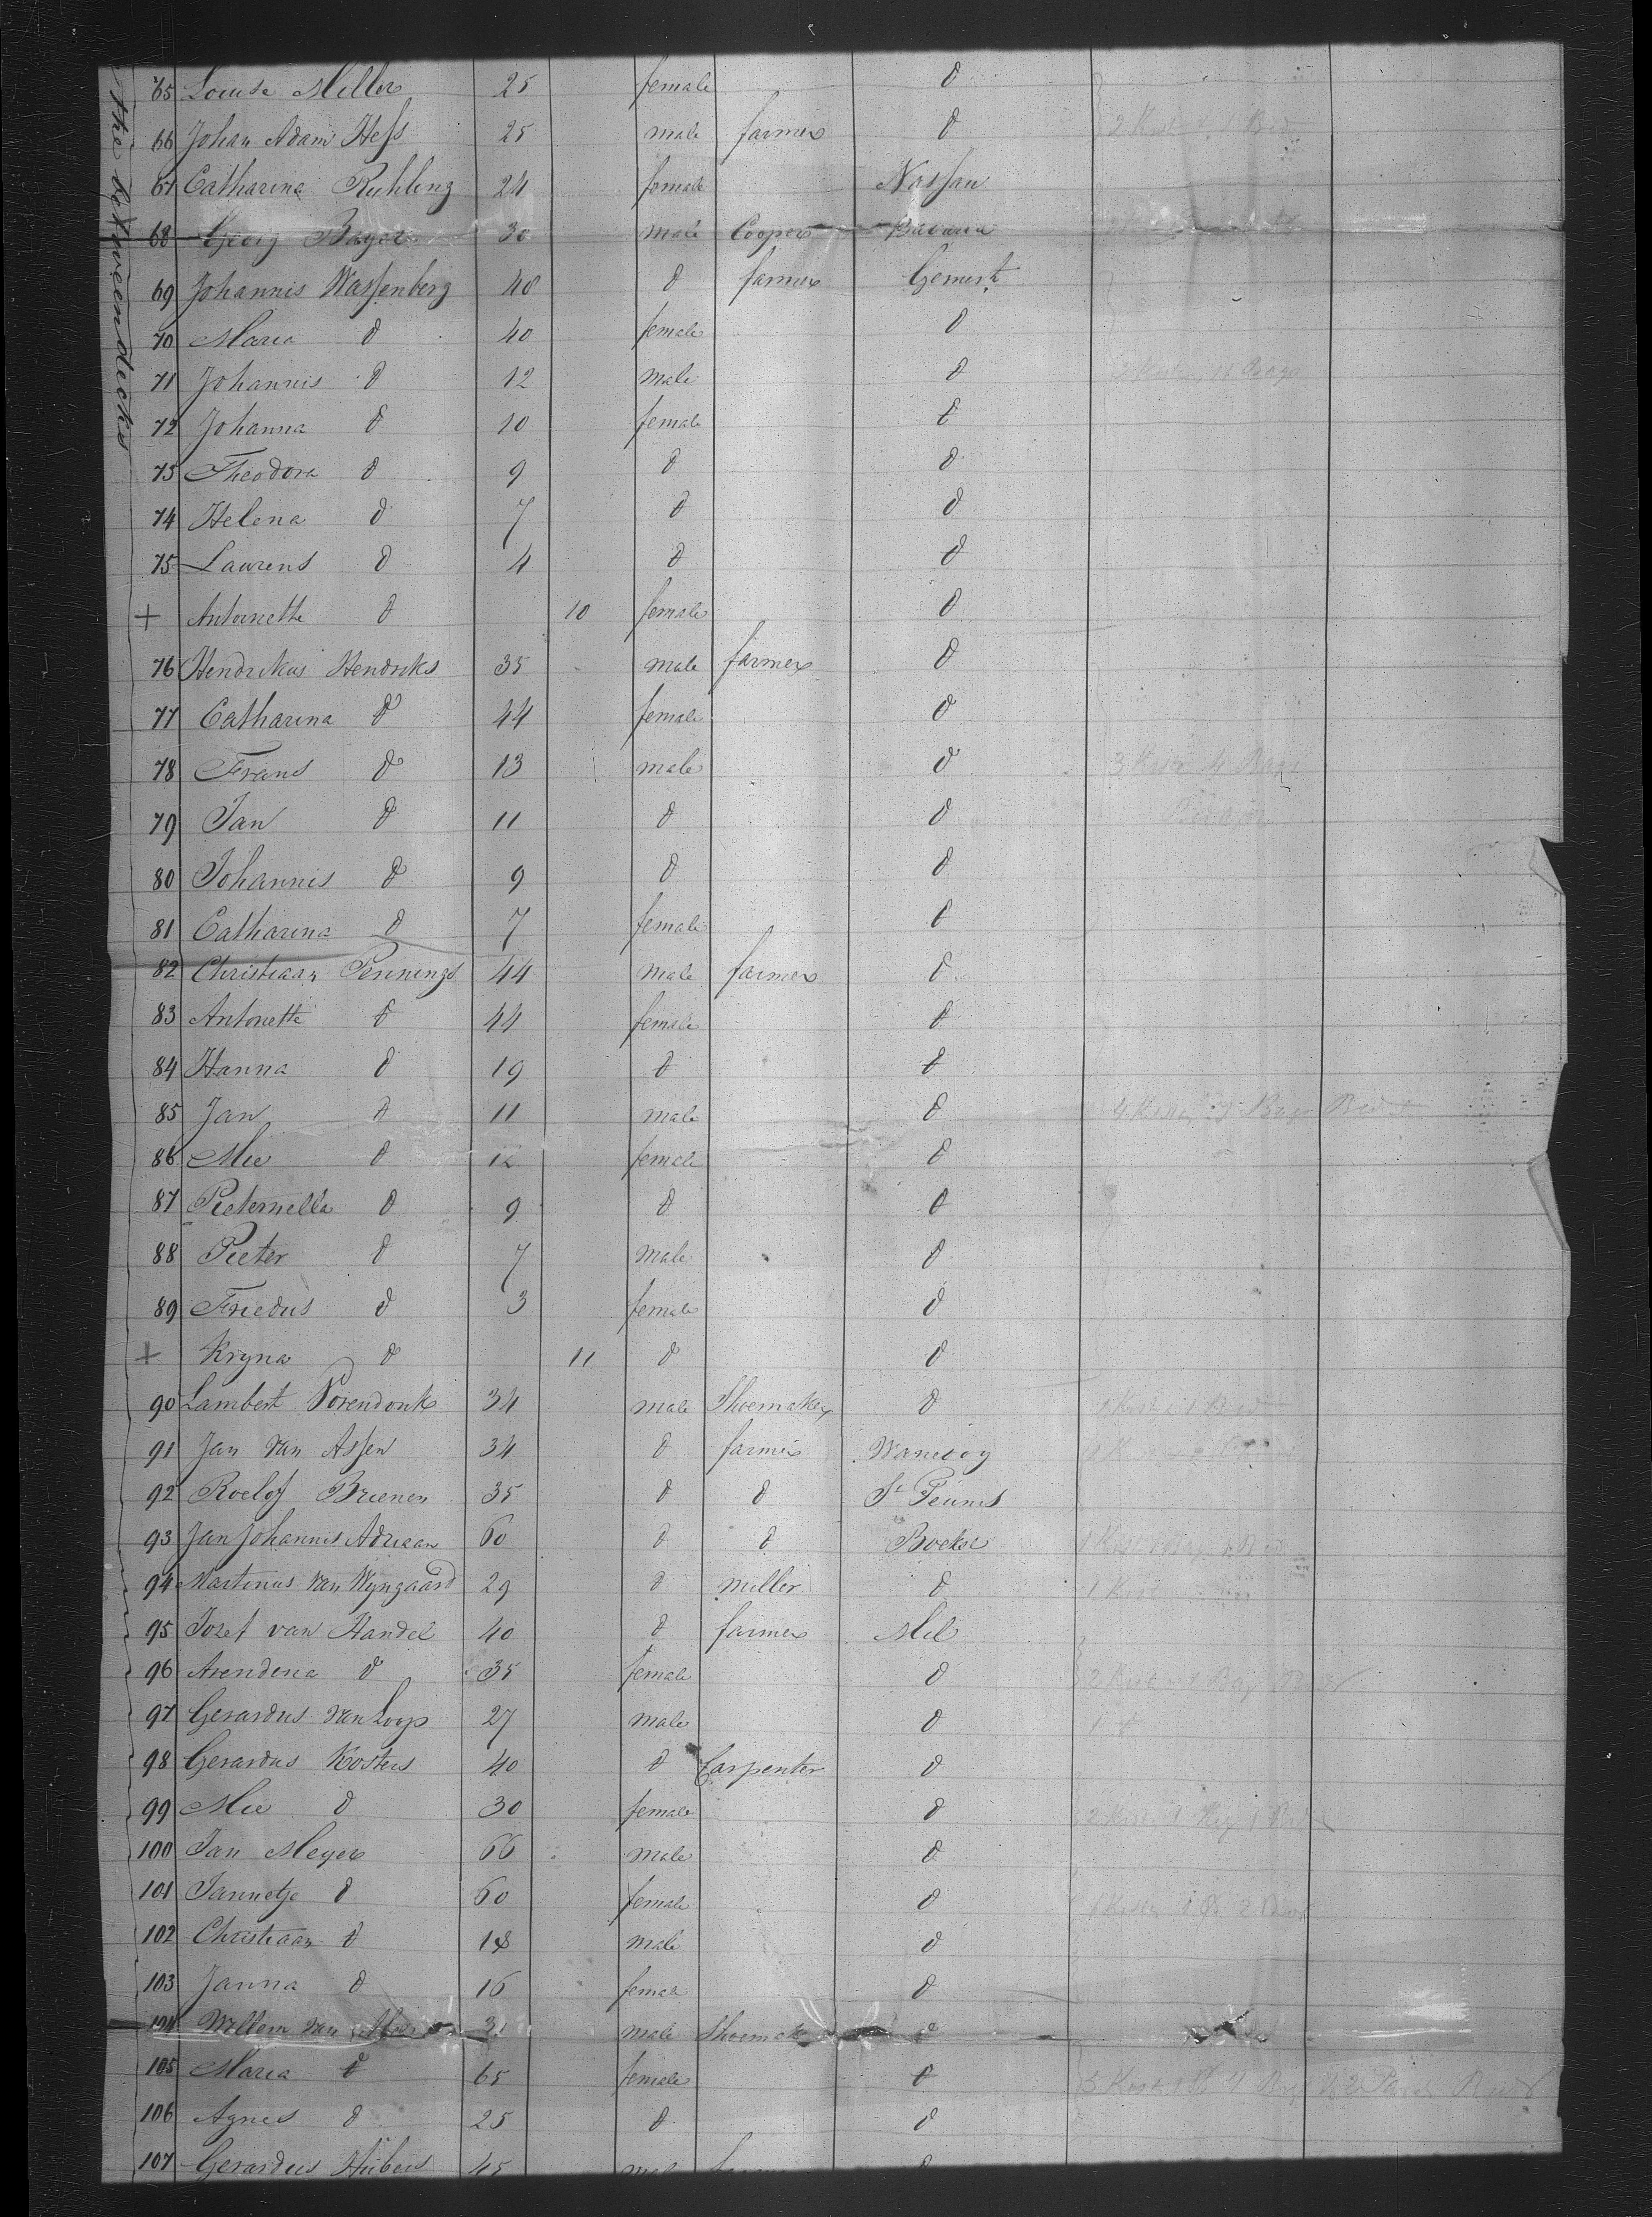 the betweendecks
65 Louise Miller 25 female d
66 Johan Adam Hess 25 male farmer d 2 Kist 1 Bed
67 Catharina Ruhling 24 female Nassau
68 Georg Bayer 30 male Cooper Bavaria
69 Johannis Wassenberg 40 d farmer Gemert
70 Maria d 40 female d
71 Johannis d 12 male d
72 Johanna d 10 female d
73 Theodora d 9 d d
74 Helena d 7 d d
75 Laurens d 4 d d
+ Antoinette d 10 female d
76 Hendrikus Hendriks 35 male farmer d
77 Catharina d 44 female d
78 Frans d 13 male d 3 Kist 4 Bags
79 Jan d 11 d d
80 Johannis d 9 d d
81 Catharina d 7 female d
82 Christiaan Pennings 44 male farmer d
83 Antonette d 44 female d
84 Hanna d 19 d d
85 Jan d 11 male d 4 Kist Bags Bed
86 Mie d 12 female d
87 Pieternella d 9 d d
88 Pieter d 7 male d
89 Friedus d 3 female d
+ Kryna d 11 d d
90 Lambert Vorendonk 34 male Shoemaker d 1 Kist 1 Bed
91 Jan van Assen 34 d farmer Waneroy
92 Roelof Brienen 35 d d St Teunis
93 Jan Johannis Adriaan 60 d d Boekel 1 Kist
94 Martinus van Wyngaard 29 d miller d 1 Kist
95 Jozef van Handel 40 d farmer Mil
96 Arendina d 35 female d 2 Kist Bag
97 Gerardus van Loop 27 male d 1 d
98 Gerardus Kosters 40 d Carpenter d
99 Mie d 30 female d 2 Kist
100 Jan Meyer 66 male d
101 Jannetje d 60 female d
102 Christiaan d 18 male d
103 Janna d 16 female d
104 Willem van male Shoemaker d
105 Maria d 65 female d 5 Kist
106 Agnes d 25 d d
107 Gerardus Hubers 45 male farmer d